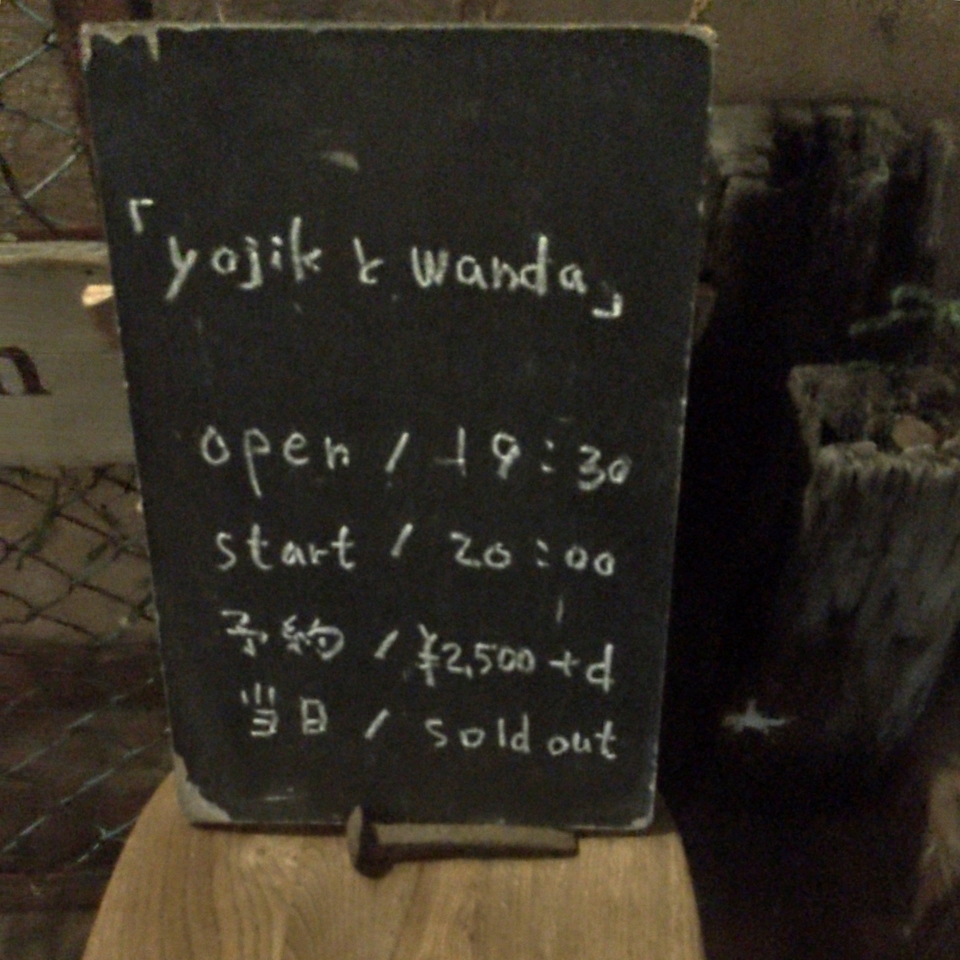 「yojik と wanda」
open / 19:30
start / 20:00
予約 / ¥2,500 +d
当日 / sold out